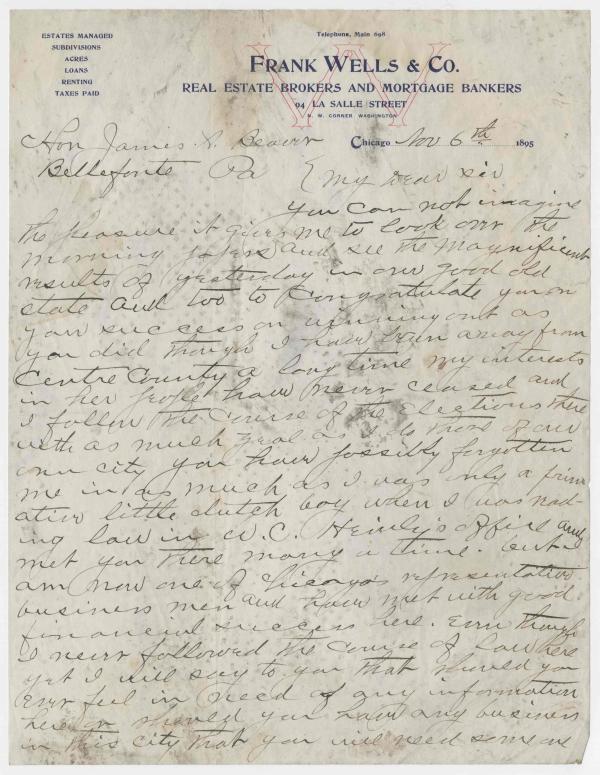 ESTATES MANAGED
SUBDIVISIONS
ACRES
LOANS
RENTING
TAXES PAID
Telephone, Main 698
FRANK WELLS & CO.
REAL ESTATE BROKERS AND MORTGAGE BANKERS
94 LA SALLE STREET
N. W. CORNER WASHINGTON
Chicago Nov 6th 1895
Hon James A. Beaver
Bellefonte Pa { My Dear Sir
You can not imagine
the pleasure it gives me to look over the
morning papers and see the magnificent
results of yesterday in our good old
state and too to congratulate you on
your success on winning out as
you did though I have been away from
Centre County a long time my interests
in her people have never ceased and
I follow the course of the elections there
with as much zeal as I do those of our
own city you have possibly forgotten
me in as much as I was only a prim
ative little dutch boy when I was read-
ing law in W. C. Heinle's office and
met you there many a time. but I
am now one of Chicagos representative
business men and have met with good
financial success here. Even though
I never followed the course of law here
yet I will say to you that should you
ever feel in need of any information
here or should you have any business
in this city that you will need some one